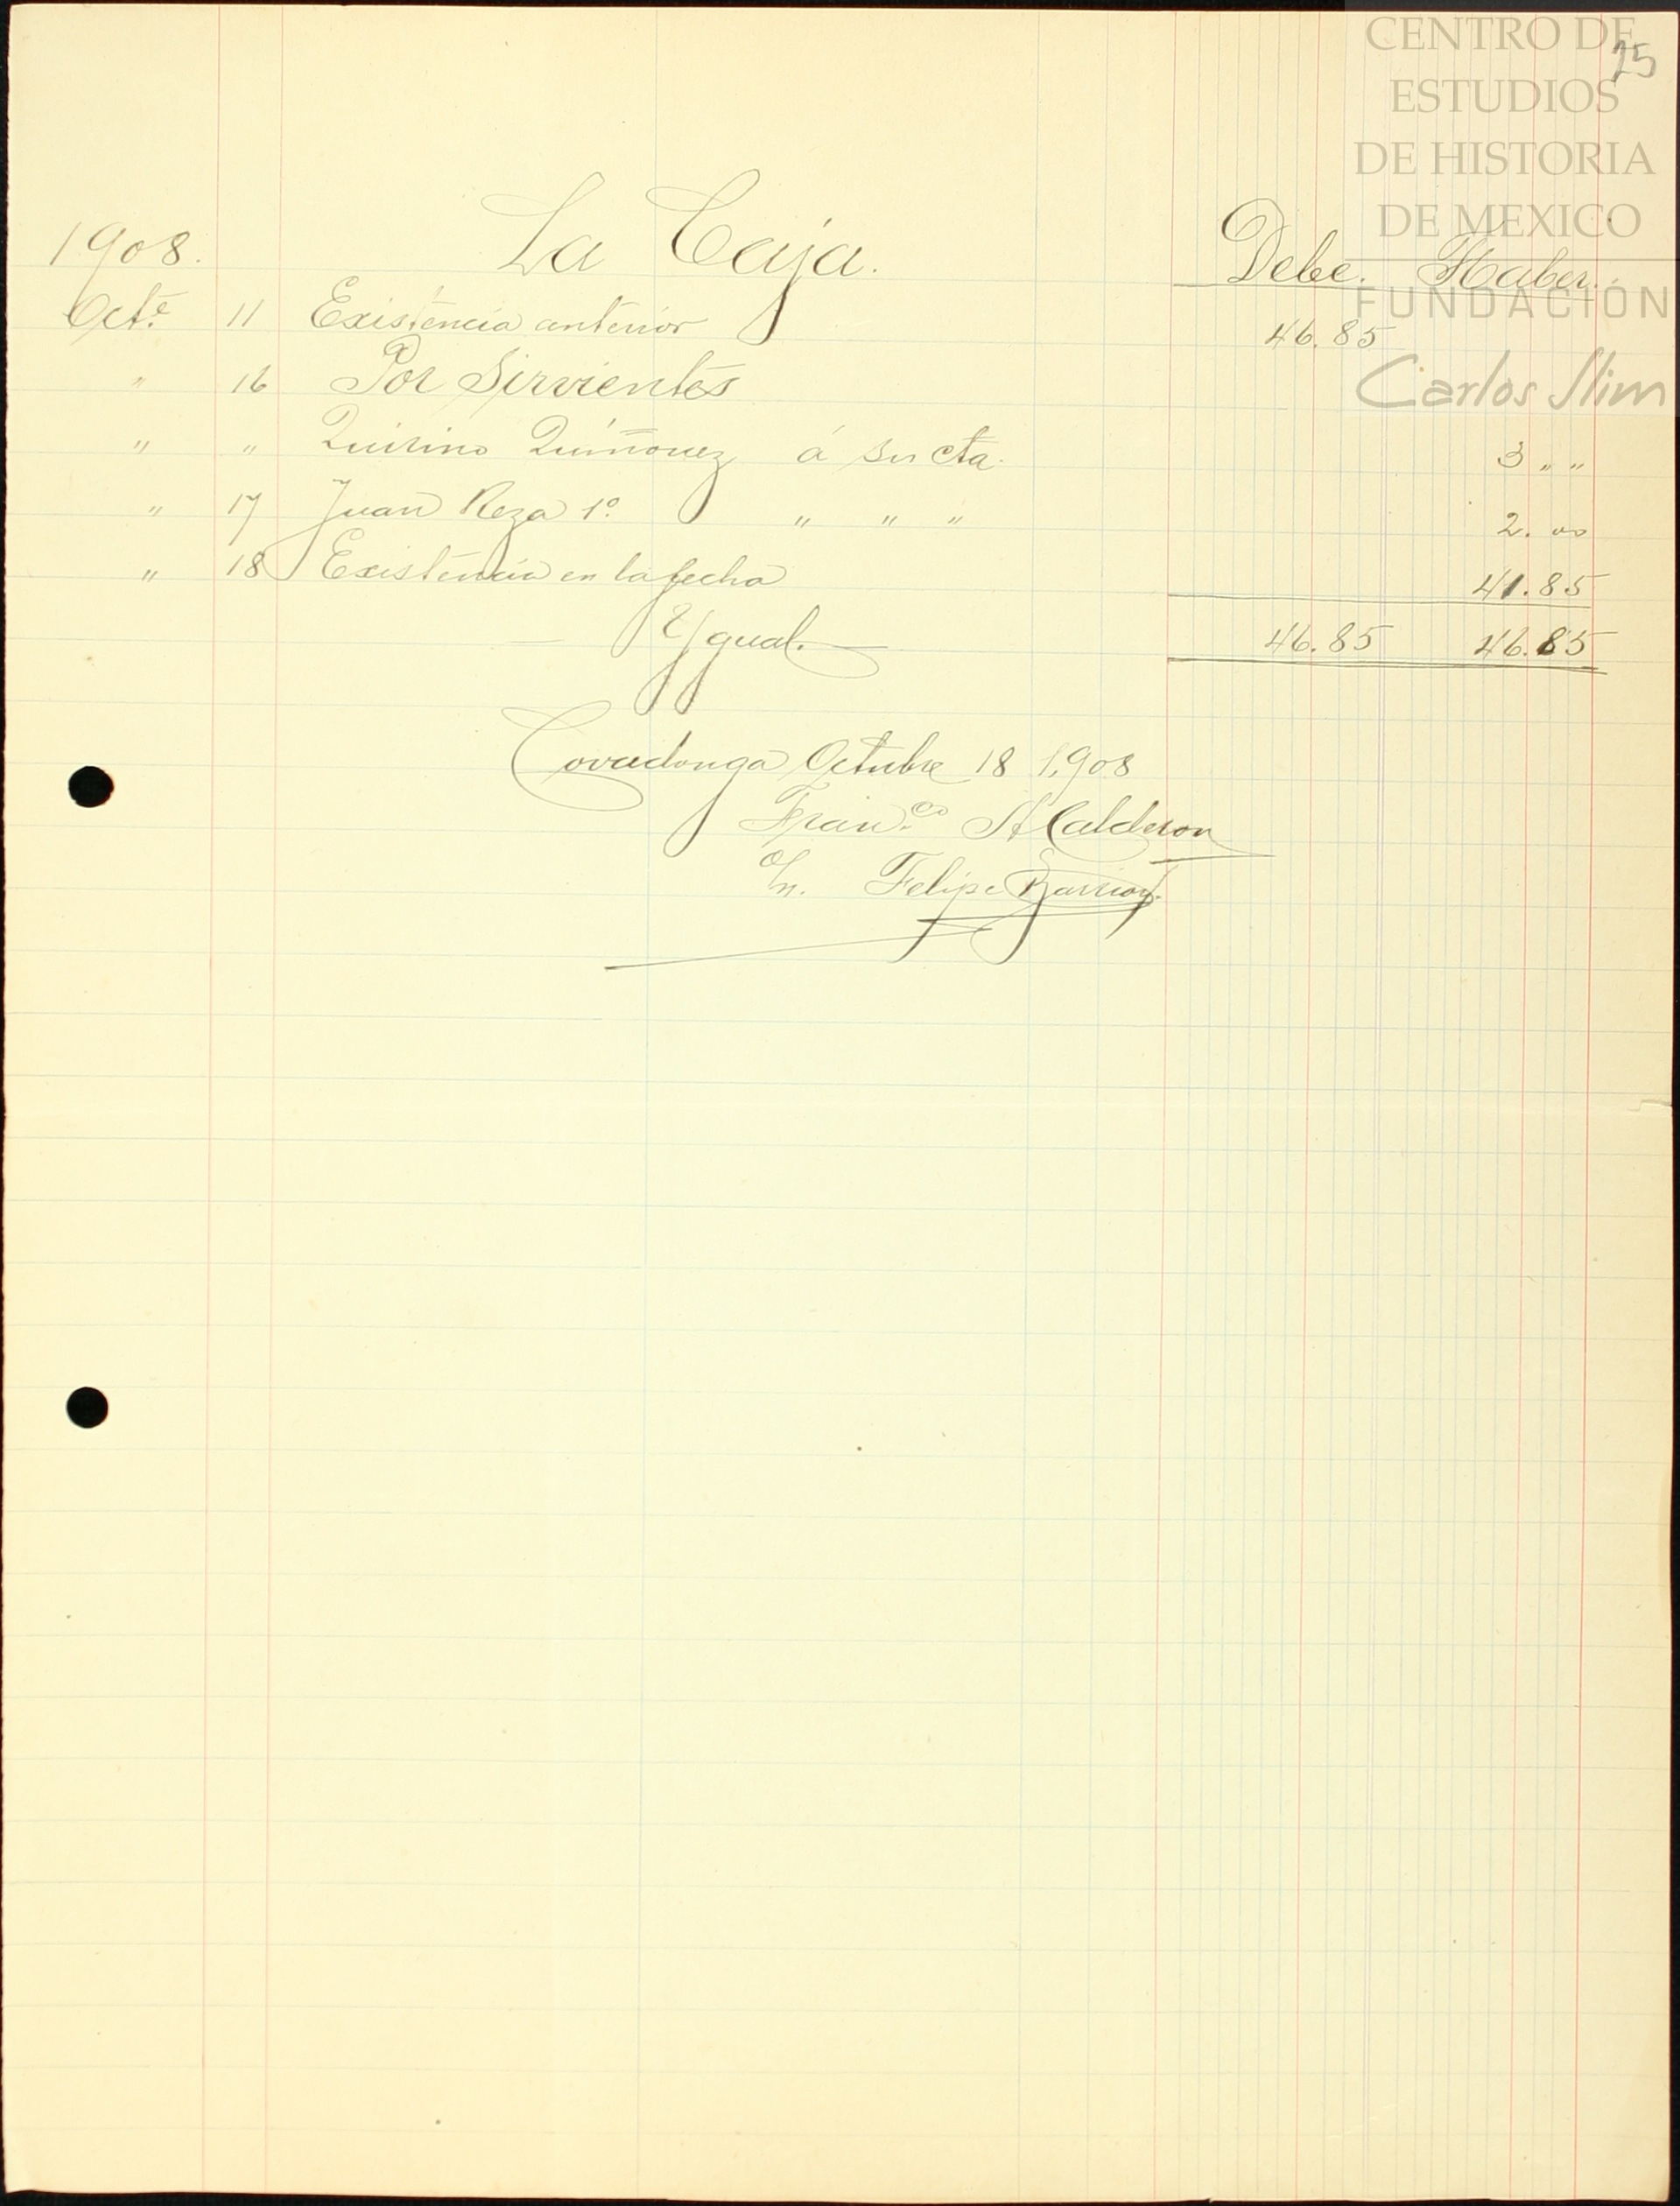 CENTRO DE
ESTUDIOS
DE HISTORIA
DE MEXICO
FUNDACIÓN
Carlos Slim
25
1908. La Caja. Debe. Haber.
Octe. 11 Existencia anterior 46.85
" 16 Por Sirvientes
" " Quirino Quiñonez á su cta. 3 " "
" 17 Juan Reza 1º " " " 2.00
" 18 Existencia en la fecha 41.85
Ygual. 46.85 46.85
Covadonga Octubre 18 1,908
Franco. A Calderon
o/n. Felipe Barrios.